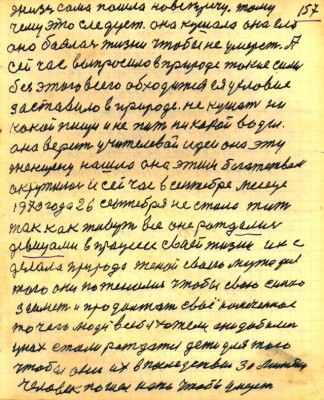 жизь сама пошла навстречу. тому 157
чему это следует. она кушала она ела
она боялась жизни чтобы не умерет. А
сей час выпросило в природе такие силы
без этого всего обходится условие
заставило в природе. не кушат ни
какой пищи и не пит никакой воды.
она верит учителевай идеи она эту
женщину нашла она этим богатством
окружилас и сей час в сентебре месеце
1979 года 26 сентебря не стала жит
так как живут все оне раждалис
девицами в процессе своей жизни их с
делала природа женой своего мужа для
того они поженилис чтобы свою силку
заимет и продолжат своё поколенное
то чего люди всего хотели они добилис
у них стали раждатся дети для того
чтобы они их впоследствии
человек пошел